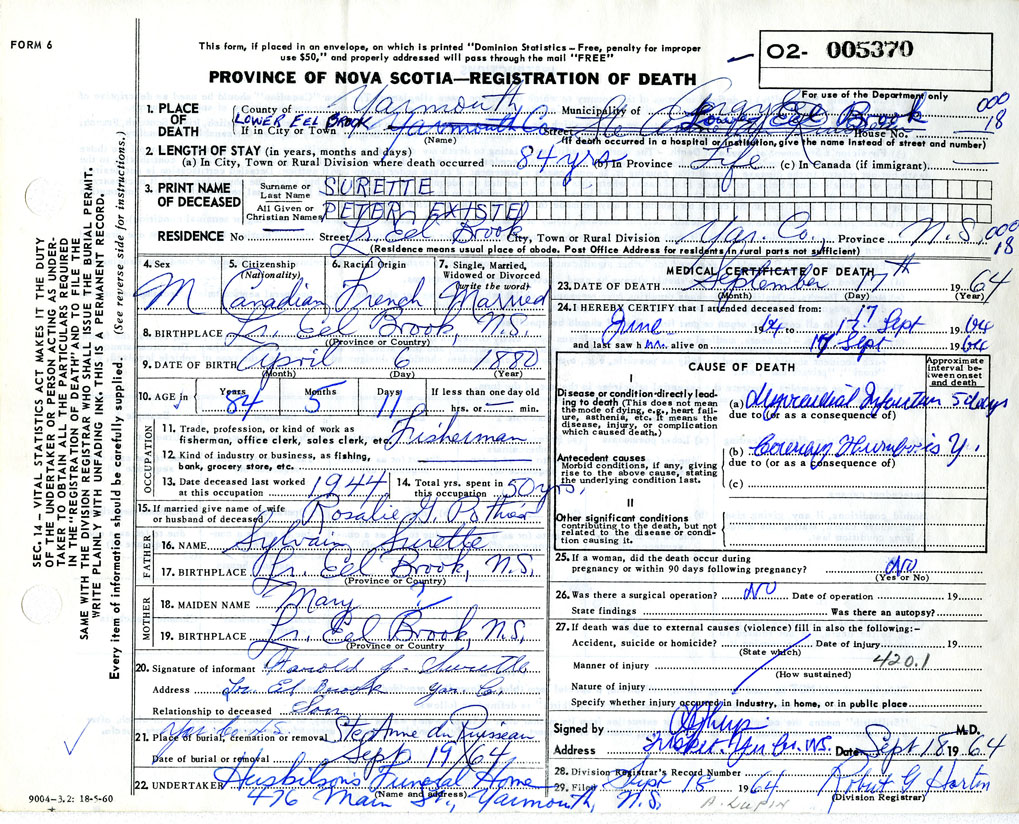 FORM 6
This form, if placed in an envelope, on which is printed "Dominion Statistics – Free, penalty for improper
use $50," and properly addressed will pass through the mail "FREE"
O2- 005370
PROVINCE OF NOVA SCOTIA—REGISTRATION OF DEATH
For use of the Department only
000
18
1. PLACE OF DEATH
County of Yarmouth Municipality of Argyle
LOWER EEL BROOK
If in City or Town Yarmouth Co. Street Lower Eel Brook House No.
(Name) (If death occurred in a hospital or institution, give the name instead of street and number)
2. LENGTH OF STAY (in years, months and days)
(a) In City, Town or Rural Division where death occurred 84 yrs (b) In Province Life (c) In Canada (if immigrant) —
3. PRINT NAME OF DECEASED
Surname or Last Name SURETTE
All Given or Christian Names PETER EXISTED
RESIDENCE No — Street Lr. Eel Brook City, Town or Rural Division Yar. Co. Province N.S.
000
18
(Residence means usual place of abode. Post Office Address for residents in rural parts not sufficient)
4. Sex M
5. Citizenship (Nationality) Canadian
6. Racial Origin French
7. Single, Married, Widowed or Divorced (write the word) Married
8. BIRTHPLACE Lr. Eel Brook, N.S.
(Province or Country)
9. DATE OF BIRTH April 6 1880
(Month) (Day) (Year)
10. AGE in Years 84 Months 5 Days 11 If less than one day hrs. or — min.
OCCUPATION
11. Trade, profession, or kind of work as fisherman, office clerk, sales clerk, etc. Fisherman
12. Kind of industry or business, as fishing, bank, grocery store, etc.
13. Date deceased last worked at this occupation 1944
14. Total yrs. spent in this occupation 50 yrs.
15. If married give name of wife or husband of deceased Rosalie G. Pothier
FATHER
16. NAME Sylvain Surette
17. BIRTHPLACE Lr. Eel Brook, N.S.
(Province or Country)
MOTHER
18. MAIDEN NAME Mary ?
19. BIRTHPLACE Lr. Eel Brook, N.S.
(Province or Country)
20. Signature of informant Harold J. Surette
Address Lr. Eel Brook Yar. Co.
Relationship to deceased Son
Yar. Co. N.S.
21. Place of burial, cremation or removal Ste Anne du Ruisseau
Date of burial or removal Sept 19/64
22. UNDERTAKER Huskilson's Funeral Home
(Name and address)
476 Main St., Yarmouth, N.S.
MEDICAL CERTIFICATE OF DEATH
23. DATE OF DEATH September 17th 1964
(Month) (Day) (Year)
24. I HEREBY CERTIFY that I attended deceased from:
June 1964 to 17 Sept 1964
17
and last saw him alive on 17 Sept 1964
CAUSE OF DEATH
Approximate interval between onset and death
I
Disease or condition directly leading to death (This does not mean the mode of dying, e.g., heart failure, asthenia, etc. It means the disease, injury, or complication which caused death.)
(a) Myocardial Infarction 5 days
due to (or as a consequence of)
Antecedent causes
Morbid conditions, if any, giving rise to the above cause, stating the underlying condition last.
(b) Coronary Thrombosis
due to (or as a consequence of)
(c)
II
Other significant conditions contributing to the death, but not related to the disease or condition causing it.
25. If a woman, did the death occur during pregnancy or within 90 days following pregnancy? NO
(Yes or No)
26. Was there a surgical operation? NO Date of operation 19
State findings Was there an autopsy?
27. If death was due to external causes (violence) fill in also the following:–
Accident, suicide or homicide? Date of injury 19
(State which)
Manner of injury 420.1
(How sustained)
Nature of injury
Specify whether injury occurred in industry, in home, or in public place
Signed by M.D.
Address Tusket, Yar. Co. N.S. Date Sept. 18 1964
28. Division Registrar's Record Number
29. Filed Sept 18 1964 Robert G Horton
(Division Registrar)
SEC. 14 – VITAL STATISTICS ACT MAKES IT THE DUTY
OF THE UNDERTAKER OR PERSON ACTING AS UNDER-
TAKER TO OBTAIN ALL THE PARTICULARS REQUIRED
IN THE "REGISTRATION OF DEATH" AND TO FILE THE
SAME WITH THE DIVISION REGISTRAR WHO SHALL ISSUE THE BURIAL PERMIT.
WRITE PLAINLY WITH UNFADING INK. THIS IS A PERMANENT RECORD.
Every item of information should be carefully supplied. (See reverse side for instructions.)
9004-3.2: 18-5-60